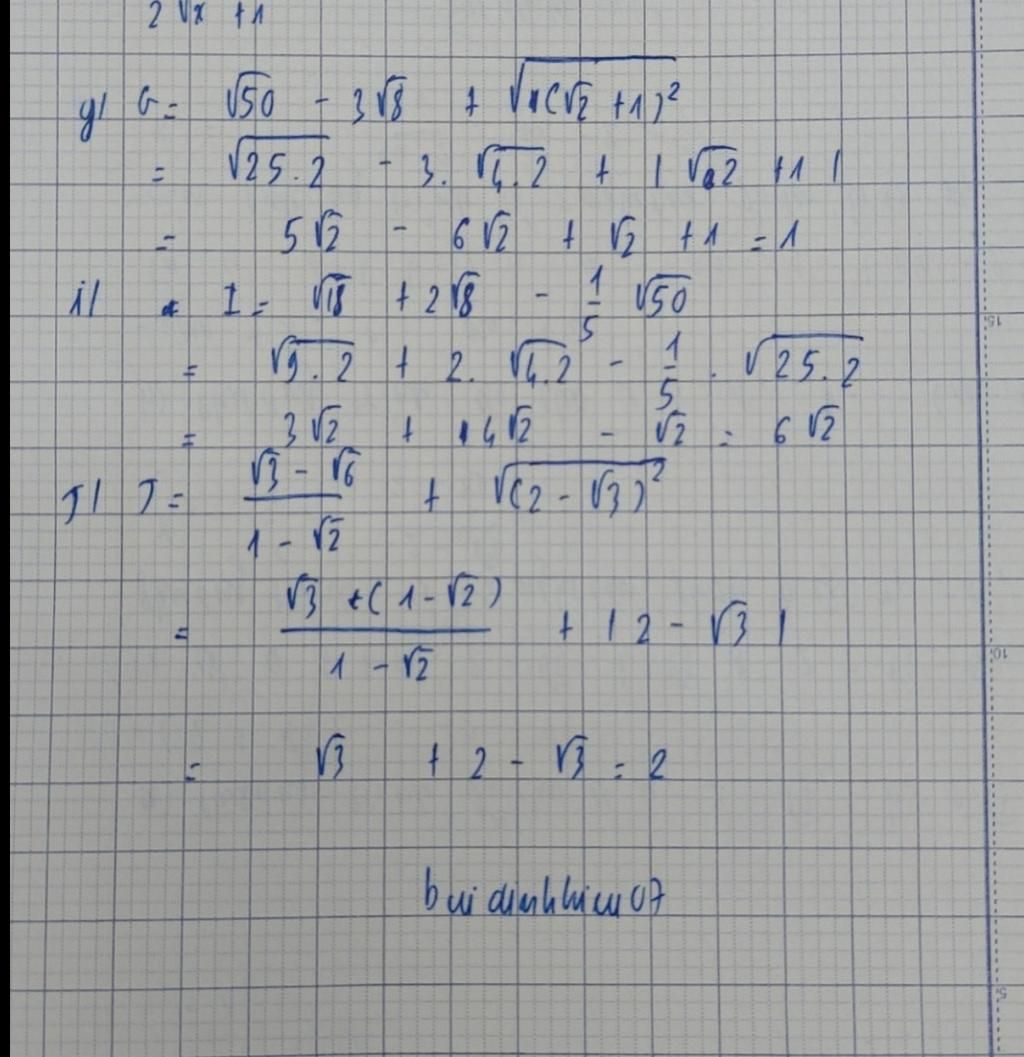 2√x + 1
g/ G = √50 - 3√8 + √(√2 + 1)²
= √25.2 - 3.√4.2 + |√2 + 1|
= 5√2 - 6√2 + √2 + 1 = 1
i/ I = √18 + 2√8 - 1/5 √50
= √9.2 + 2.√4.2 - 1/5 . √25.2
= 3√2 + 4√2 - √2 = 6√2
J/ J = (√3 - √6)/(1 - √2) + √(2 - √3)²
= (√3 (1 - √2))/(1 - √2) + |2 - √3|
= √3 + 2 - √3 = 2
15
10
5